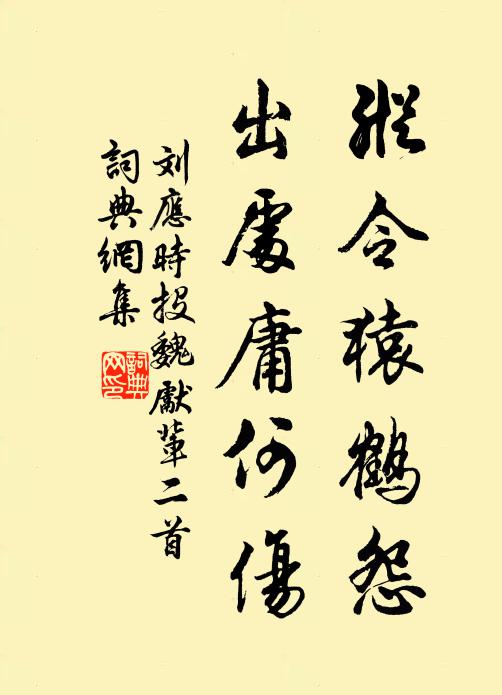 縱令猿鶴怨
出處庸何傷
刘應時投魏獻輩二首
詞典網集
詞典网印